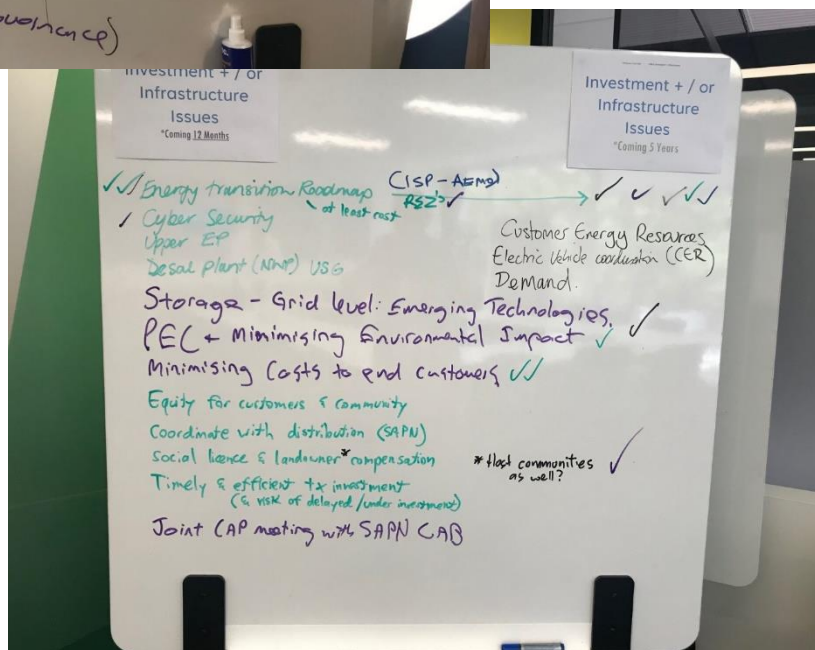 Investment + / or
Infrastructure
Issues
*Coming 12 Months
Investment + / or
Infrastructure
Issues
*Coming 5 Years
✓✓ Energy transition Roadmap (ISP - AEMO) ✓ ✓ ✓✓✓
at least cost REZ's ✓
✓ Cyber Security
Upper EP
Desal Plant (NWP) USG
Customer Energy Resources
Electric Vehicle coordination (CER)
Demand.
Storage - Grid level: Emerging Technologies.
PEC + Minimising Environmental Impact ✓ ✓
Minimising Costs to end customers ✓✓
Equity for customers & community
Coordinate with distribution (SAPN)
Social licence & landowner* compensation
* Host communities ✓
as well?
Timely & efficient tx investment
(& risk of delayed/under investment)
Joint CAP meeting with SAPN CAB